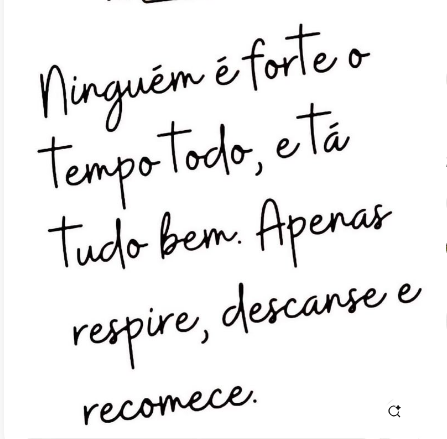 Ninguém é forte o
tempo todo, e tá
tudo bem. Apenas
respire, descanse e
recomece.